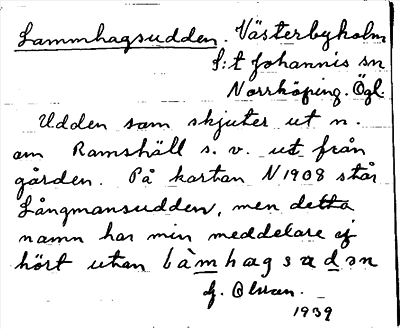 Lammhagsudden. Västerbyholm
S:t Johannis sn
Norrköping. Ögl.
Udden som skjuter ut n.
om Ramshäll s. v. ut från
gården. På kartan N1908 står
Långmansudden, men detta
namn har min meddelare ej
hört utan làmhagsudən
J. Olson.
1939